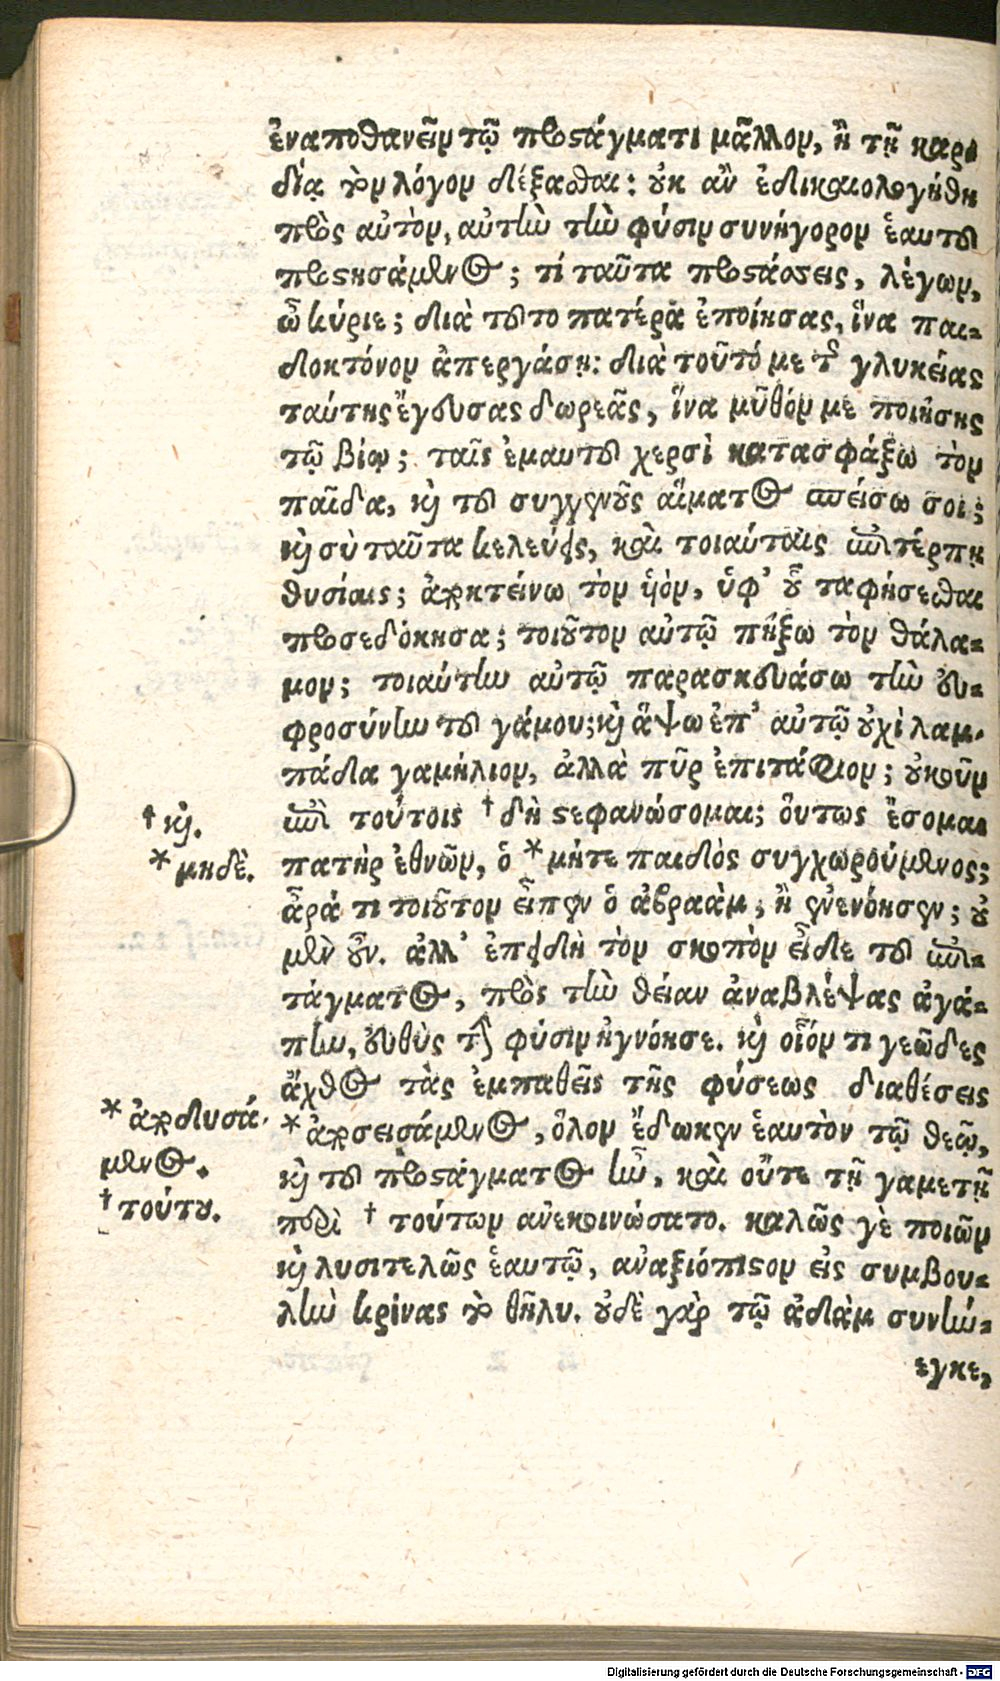 ἐναποθανεῖν τῷ προστάγματι μᾶλλον, ἢ τῇ καρ-
δίᾳ τὸν λόγον δέξασθαι: οὐκ ἂν ἐδικαιολογήθη
πρὸς αὐτὸν, αὐτὴν τὴν φύσιν συνήγορον ἑαυτοῦ
προστησάμενος; τί ταῦτα προστάσσεις, λέγων,
ὦ κύριε; διὰ τοῦτο πατέρα ἐποίησας, ἵνα παι-
δοκτόνον ἀπεργάσῃ: διὰ τοῦτό με τῆς γλυκείας
ταύτης ἔγευσας δωρεᾶς, ἵνα μῦθόν με ποιήσῃς
τῷ βίῳ; ταῖς ἐμαυτοῦ χερσὶ κατασφάξω τὸν
παῖδα, καὶ τοῦ συγγενοῦς αἵματος σπείσω σοι;
καὶ σὺ ταῦτα κελεύεις, καὶ τοιαύταις ἐπιτέρπῃ
θυσίαις; ἀποκτείνω τὸν υἱὸν, ὑφ' οὗ ταφήσεσθαι
προσεδόκησα; τοιοῦτον αὐτῷ πήξω τὸν θάλα-
μον; τοιαύτην αὐτῷ παρασκευάσω τὴν εὐ-
φροσύνην τοῦ γάμου; καὶ ἅψω ἐπ' αὐτῷ οὐχὶ λαμ-
πάδα γαμήλιον, ἀλλὰ πῦρ ἐπιτάφιον; οὐκοῦν
† καὶ.
ἐπὶ τούτοις † δὴ στεφανώσομαι; οὕτως ἔσομαι
* μηδὲ.
πατὴρ ἐθνῶν, ὁ * μήτε παιδὸς συγχωρούμενος;
ἆρά τι τοιοῦτον εἶπεν ὁ ἀβραὰμ, ἢ ἐνενόησεν; οὐ
μὲν οὖν. ἀλλ' ἐπειδὴ τὸν σκοπὸν εἶδε τοῦ ἐπι-
τάγματος, πρὸς τὴν θείαν ἀναβλέψας ἀγά-
πην, εὐθὺς τὴν φύσιν ἠγνόησε. καὶ οἷόν τι γεῶδες
ἄχθος τὰς ἐμπαθεῖς τῆς φύσεως διαθέσεις
* ἀποδυσά-
μενος.
* ἀποσεισάμενος, ὅλον ἔδωκεν ἑαυτὸν τῷ θεῷ,
καὶ τοῦ προστάγματος ἦν, καὶ οὔτε τῇ γαμετῇ
† τούτου.
περὶ † τούτων ἀνεκοινώσατο. καλῶς γε ποιῶν
καὶ λυσιτελῶς ἑαυτῷ, ἀναξιόπιστον εἰς συμβου-
λὴν κρίνας τὸ θῆλυ. οὐδὲ γὰρ τῷ ἀδὰμ συνή-
εγκε,
Digitalisierung gefördert durch die Deutsche Forschungsgemeinschaft - DFG